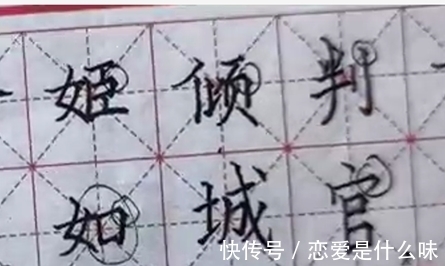 姬倾判
如城官
快传号 / 恋爱是什么味